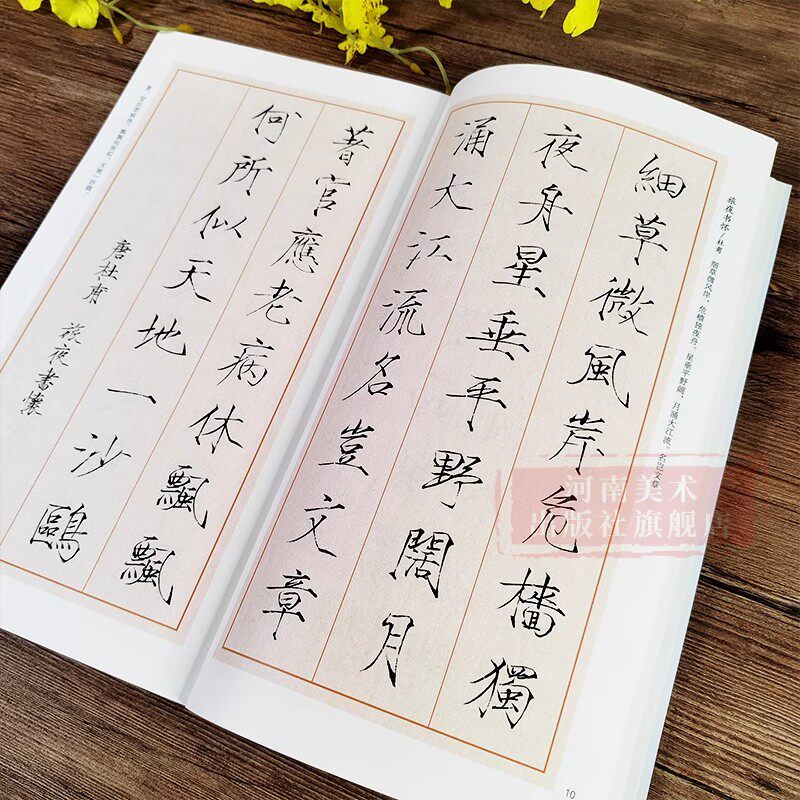 旅夜书怀/杜甫 细草微风岸，危樯独夜舟。星垂平野阔，月涌大江流。名岂文章
細草微風岸危檣獨
夜舟星垂平野闊月
涌大江流名豈文章
10
著官應老病休飄飄
何所似天地一沙鷗
唐杜甫 旅夜書懷
著，官应老病休。飘飘何所似，天地一沙鸥。
河南美术
出版社旗舰店